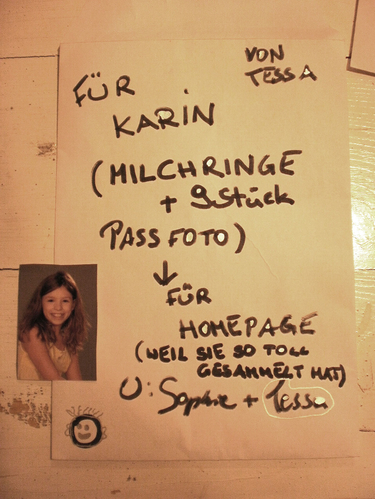 VON
TESSA
FÜR
KARIN
(MILCHRINGE
+ 9 Stück
PASSFOTO)
FÜR
HOMEPAGE
(WEIL SIE SO TOLL
GESAMMELT HAT)
U: Sophie + Tessa